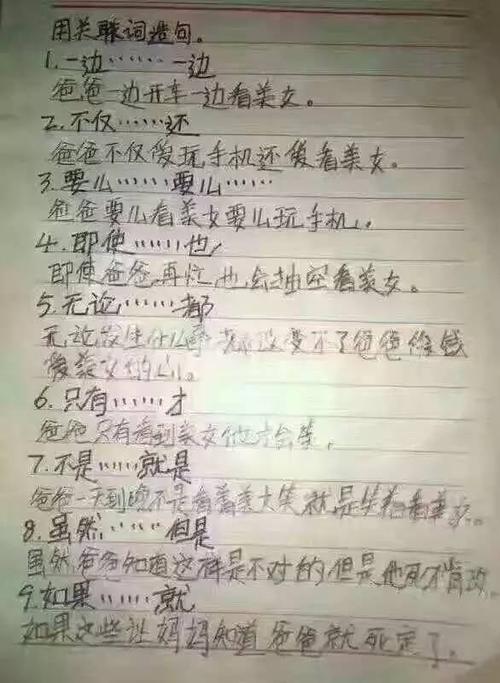 用关联词造句。
1.一边……一边
爸爸一边开车一边看美女。
2.不仅……还
爸爸不仅爱玩手机还爱看美女。
3.要么……要么……
爸爸要么看美女要么玩手机。
4.即使……也
即使爸爸再忙也会抽空看美女。
5.无论……都
无论发生什么事都改变不了爸爸爱钱
爱美女的心。
6.只有……才
爸爸只有看到美女他才会笑。
7.不是……就是
爸爸一天到晚不是看着美女大笑就是笑着看美女。
8.虽然……但是
虽然爸爸知道这样是不对的但是他死不肯改。
9.如果……就
如果这些让妈妈知道爸爸就死定了。